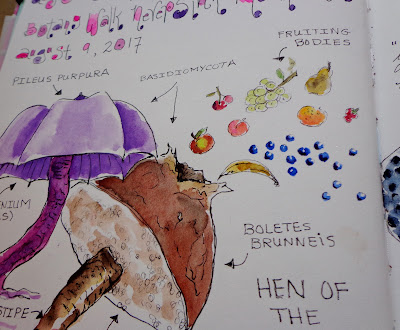 Botanic Walk
august 9, 2017
PILEUS PURPURA
BASIDIOMYCOTA
FRUITING
BODIES
BOLETES
BRUNNEIS
STIPE
HEN OF
THE